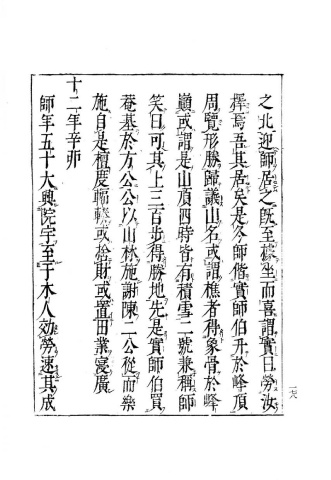 之北迎師居之既至據坐而喜謂實曰勞汝
擇焉吾其居矣是冬師偕實師伯升於峰頂
周覽形勝歸議山名或謂樵者得象骨於峰
巔或謂是山頂四時皆有積雪二號兼稱師
笑曰可其上三百步得勝地先是實師伯買
菴基於方公公以山林施謝陳二公從而樂
施自是檀度輻輳或捨財或置田業寖廣
十二年辛卯
師年五十大興院宇至于木人効勞速其成